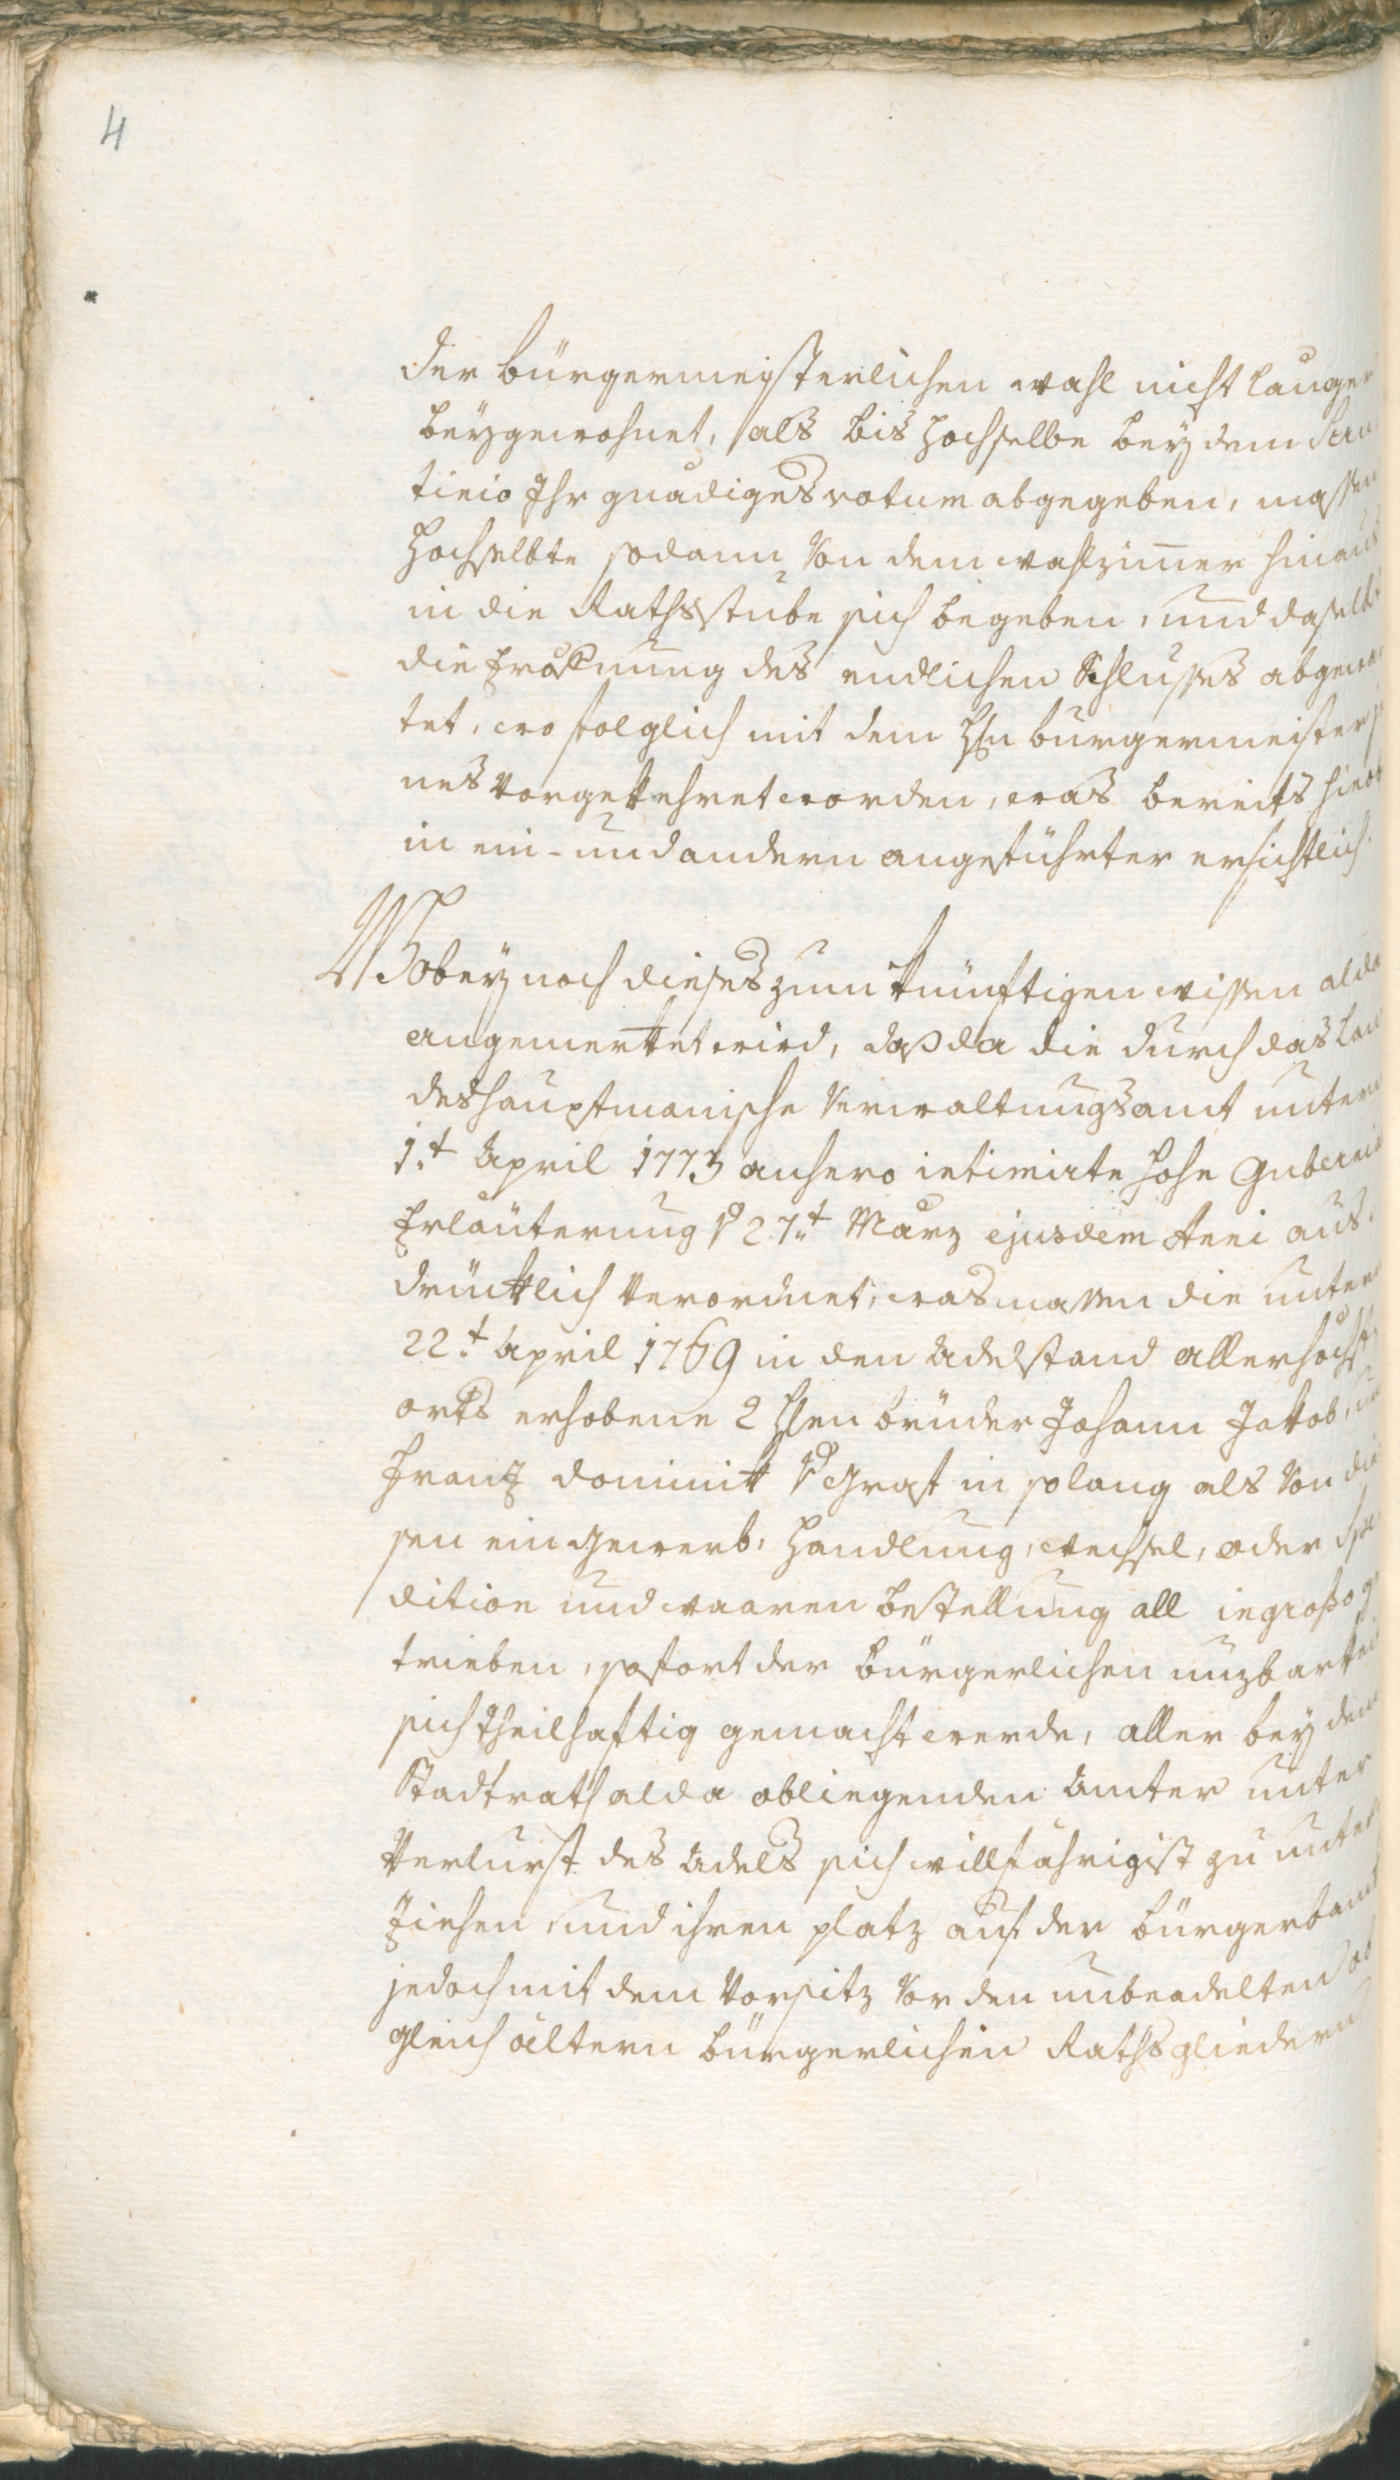 4
der bürgermeisterlichen wahl nicht länger
beÿgewohnet, als bis hochselbe beÿ dem Scru
tinio Ihr gnädiges votum abgegeben, massen
hochselbte sodann von dem wahlzimer hinaus
in die Rathsstube sich begeben, und daselbst
die Eröffnung des endlichen Schlusses abgewar
tet, wo folglich mit dem Hrn burgermeister
nes vorgekehret worden, was bereits hier
in ein- und andern angeführter ersichtlich.
Wobeÿ noch dieses zum künftigen wissen alda
angemerket wird, daß da die durch das Lan
deshauptmanische Verwaltungsamt unterm
1.t April 1773 anhero intimirte hohe Gubernial
Erläuterung de 27.t März ejusdem Anni aus
drücklich verordnet, was massen die unterm
22.t April 1769 in den Adelstand allerhöchst
orts erhobene 2 Hren brüder Johann Jakob, und
Franz dominik de Graf in solang als von die
sen ein Gewerb, Handlung, wechsel, oder Spe
dition und waaren bestellung all ingrosso ge
trieben, sofort der bürgerlichen nuzbarkeit
sich theilhaftig gemacht werde, aller beÿ dem
Stadtrath alda obliegenden ämter unter
Verlurst des Adels sich willfährigist zu unter
ziehen, und ihren platz auf der bürgerbank
jedoch mit dem Vorsitz vor den unbeadelten ob
gleich ältern bürgerlichen Rathsgliedern